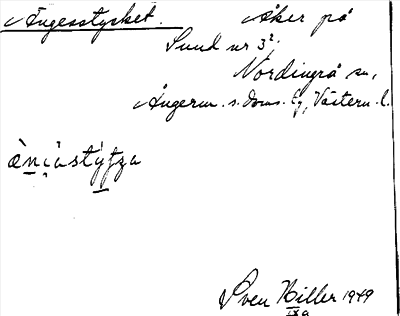 Ångesstycket. Åker på
Sund nr 3²,
Nordingrå sn,
Ångerm. s. doms. lg, Västern. l.
Sven Hiller 1949
IXa